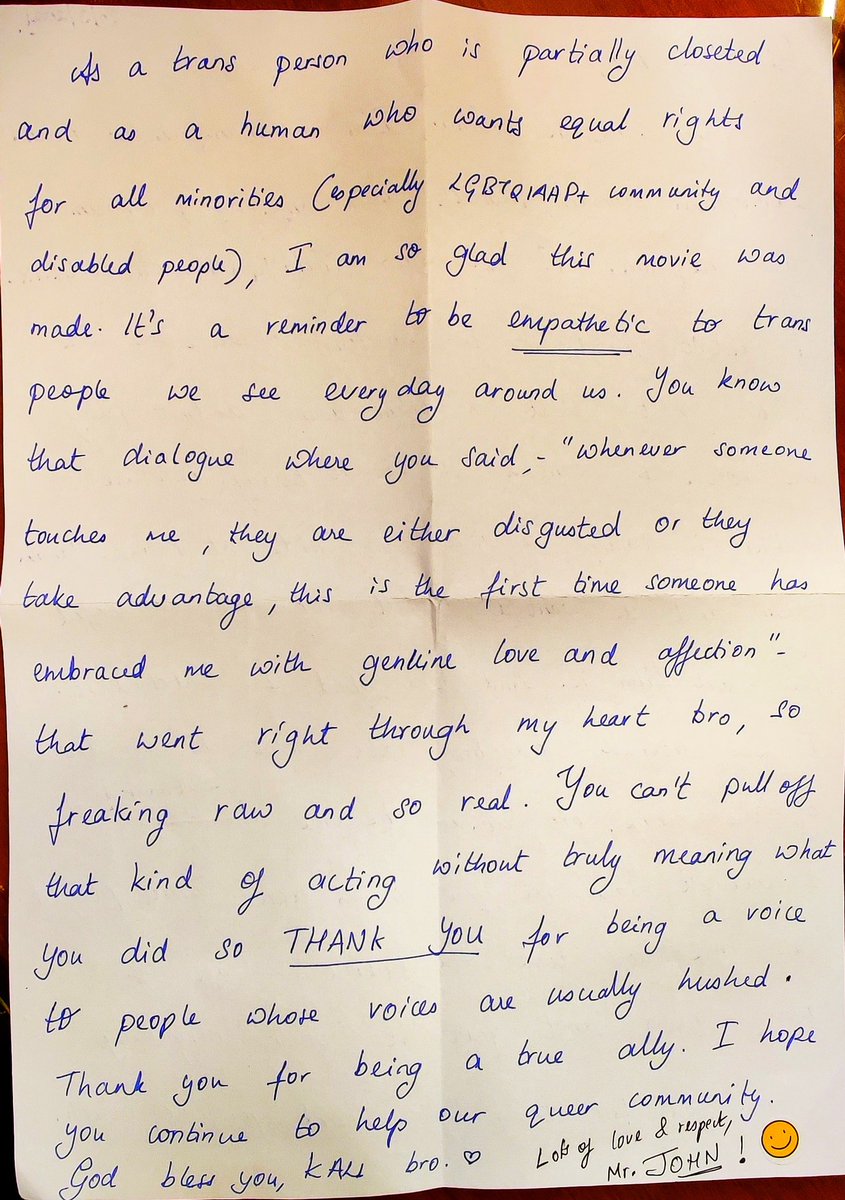 As a trans person who is partially closeted
and as a human who wants equal rights
for all minorities (especially LGBTQIAAP+ community and
disabled people), I am so glad this movie was
made. It's a reminder to be empathetic to trans
people we see everyday around us. You know
that dialogue where you said,- "whenever someone
touches me, they are either disgusted or they
take advantage, this is the first time someone has
embraced me with genuine love and affection"-
that went right through my heart bro, so
freaking raw and so real. You can't pull off
that kind of acting without truly meaning what
you did so THANK YOU for being a voice
to people whose voices are usually hushed.
Thank you for being a true ally. I hope
you continue to help our queer community.
God bless you, KALI bro. ♡
Lots of love & respect,
Mr. JOHN !